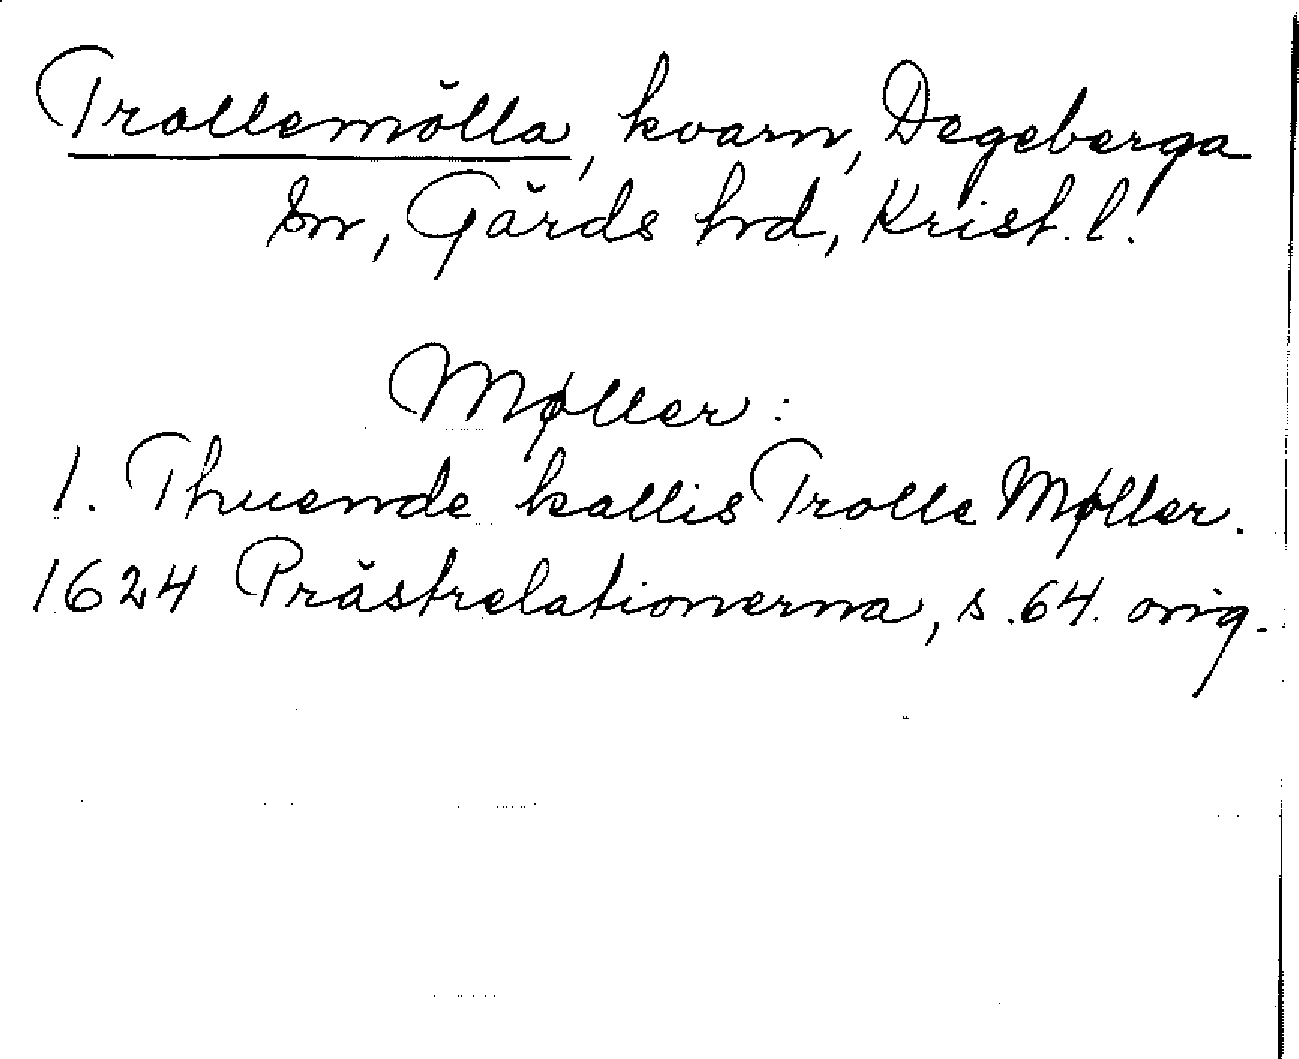 Trollemölla, kvarn, Degeberga
sn, Gärds hd, Krist. l.
Møller:
1. Thuende kallis Trolle Møller.
1624 Prästrelationerna, s. 64. orig.